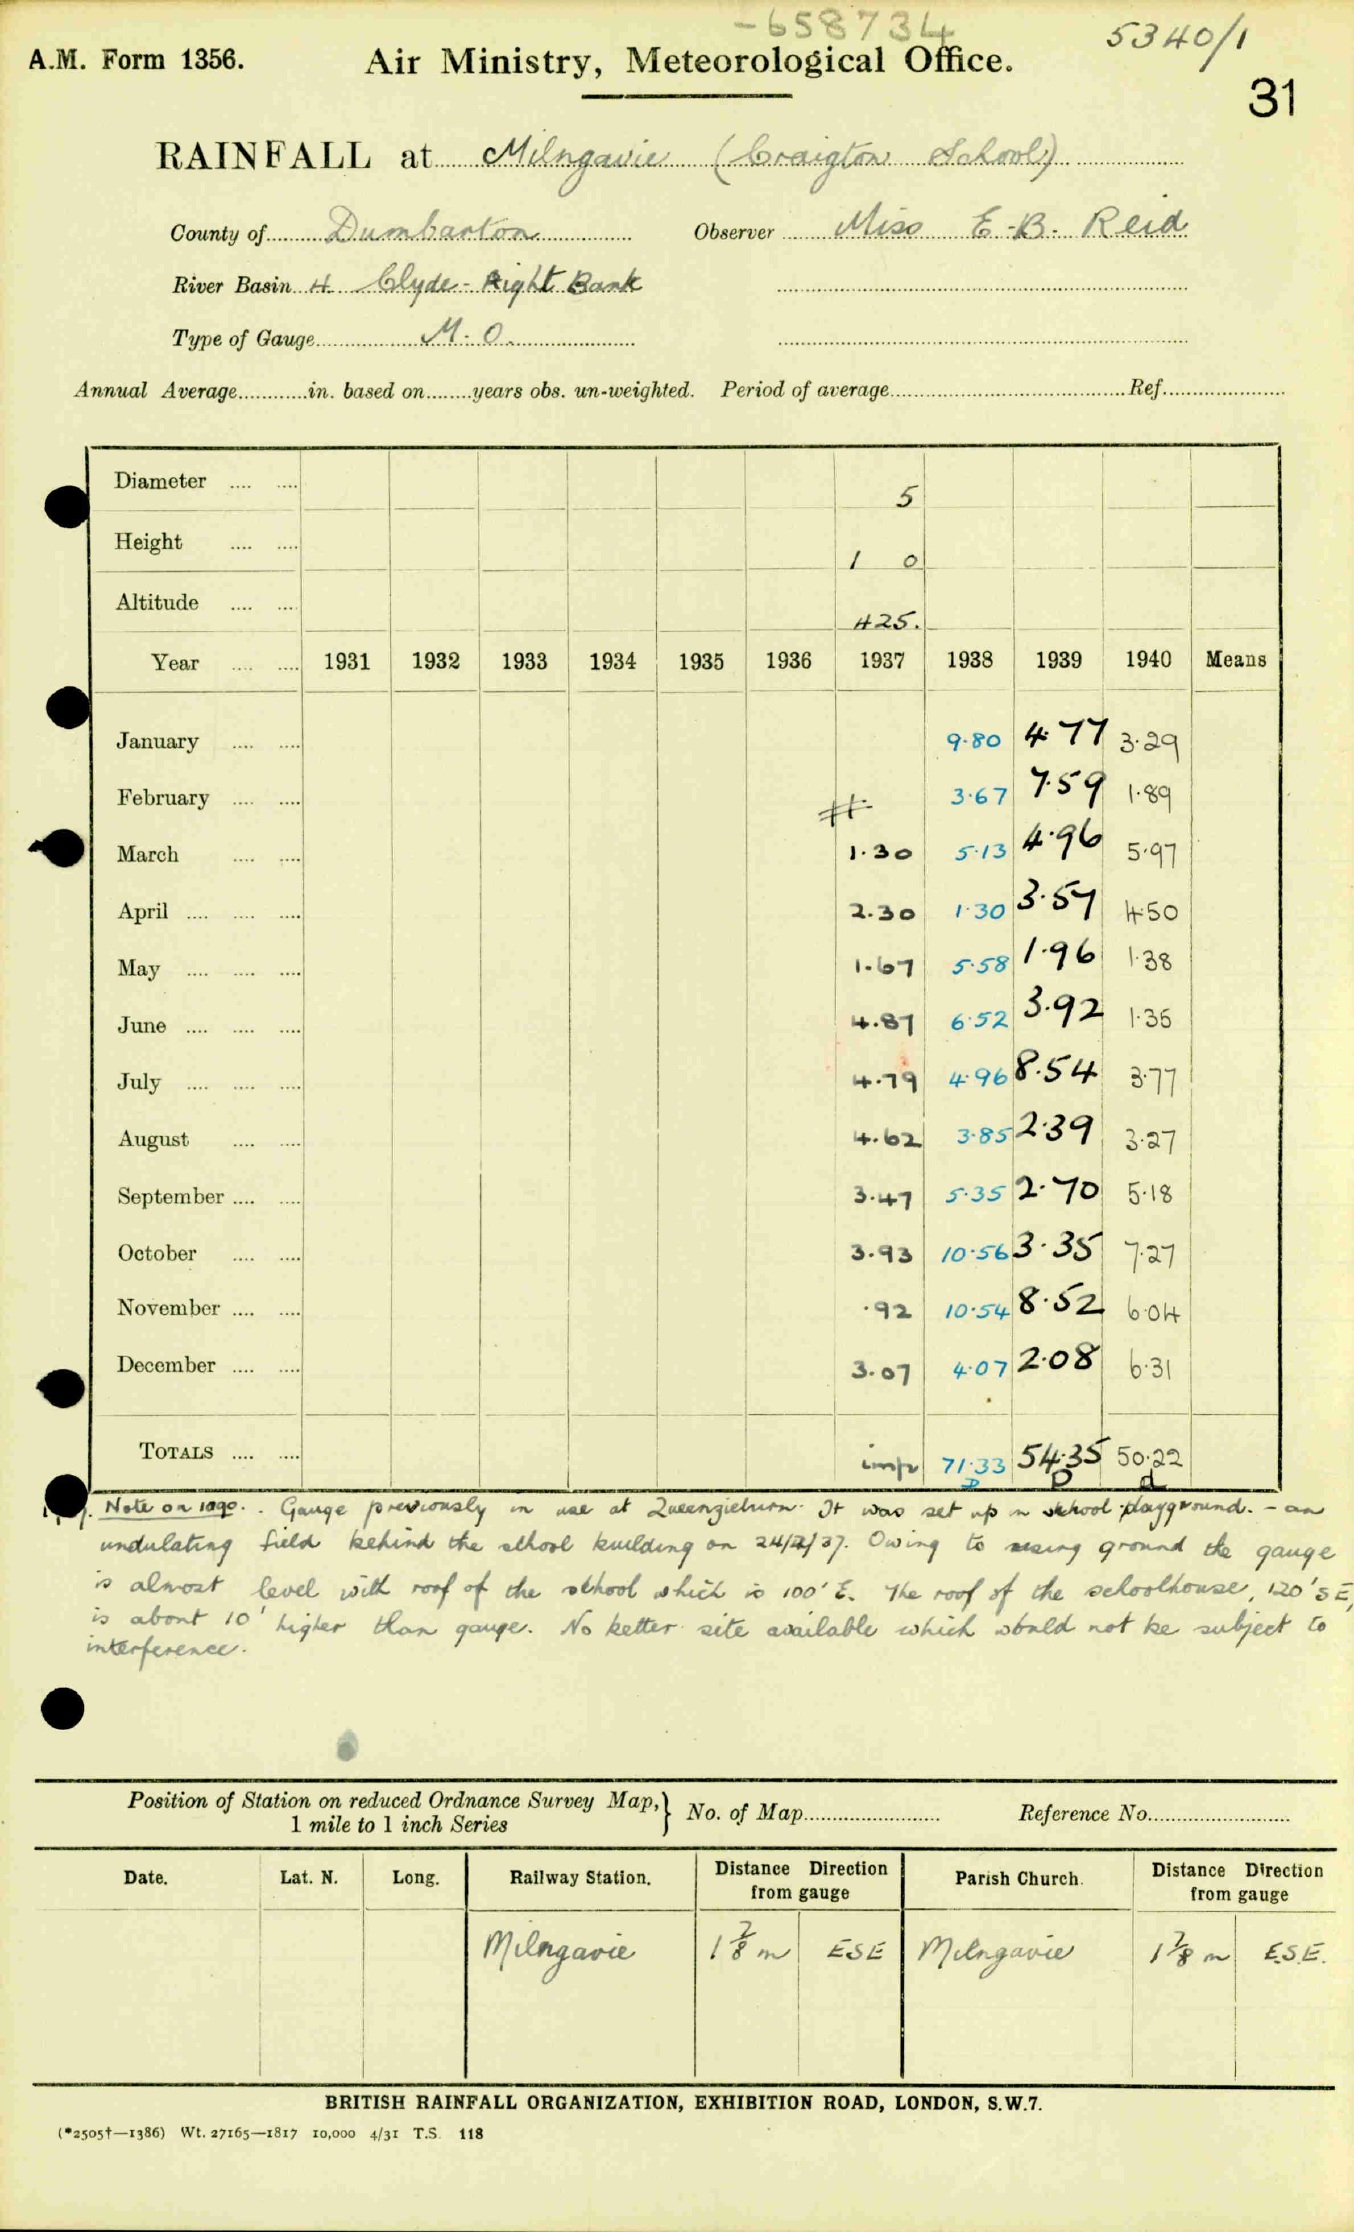 -658734
5340/1
A.M. Form 1356. Air Ministry, Meteorological Office.
31
RAINFALL at Milngavie (Craigton School)
County of Dumbarton Observer Miss E.B. Reid
River Basin 4 Clyde - Right Bank
Type of Gauge M.O.
Annual Average in. based on years obs. un-weighted. Period of average Ref.
Diameter 5
Height 1 0
Altitude 425.
Year 1931 1932 1933 1934 1935 1936 1937 1938 1939 1940 Means
January 9.80 4.77 3.29
February 3.67 7.59 1.89
March 1.30 5.13 4.96 5.97
April 2.30 1.30 3.57 4.50
May 1.67 5.58 1.96 1.38
June 4.87 6.52 3.92 1.35
July 4.79 4.96 8.54 3.77
August 4.62 3.85 2.39 3.27
September 3.47 5.35 2.70 5.18
October 3.93 10.56 3.35 7.27
November .92 10.54 8.52 6.04
December 3.07 4.07 2.08 6.31
TOTALS imp 71.33 54.35 50.22
Note on 1090. Gauge previously in use at Queenzieburn. It was set up in school playground. - an
undulating field behind the school building on 24/2/37. Owing to rising ground the gauge
is almost level with roof of the school which is 100' E. The roof of the schoolhouse, 120' SE,
is about 10' higher than gauge. No better site available which would not be subject to
interference.
Position of Station on reduced Ordnance Survey Map, } No. of Map Reference No.
1 mile to 1 inch Series
Date. Lat. N. Long. Railway Station. Distance Direction from gauge Parish Church. Distance Direction from gauge
Milngavie 1 7/8 m ESE Milngavie 1 7/8 m E.S.E.
BRITISH RAINFALL ORGANIZATION, EXHIBITION ROAD, LONDON, S.W.7.
(*2505†—1386) Wt. 27165—1817 10,000 4/31 T.S. 118